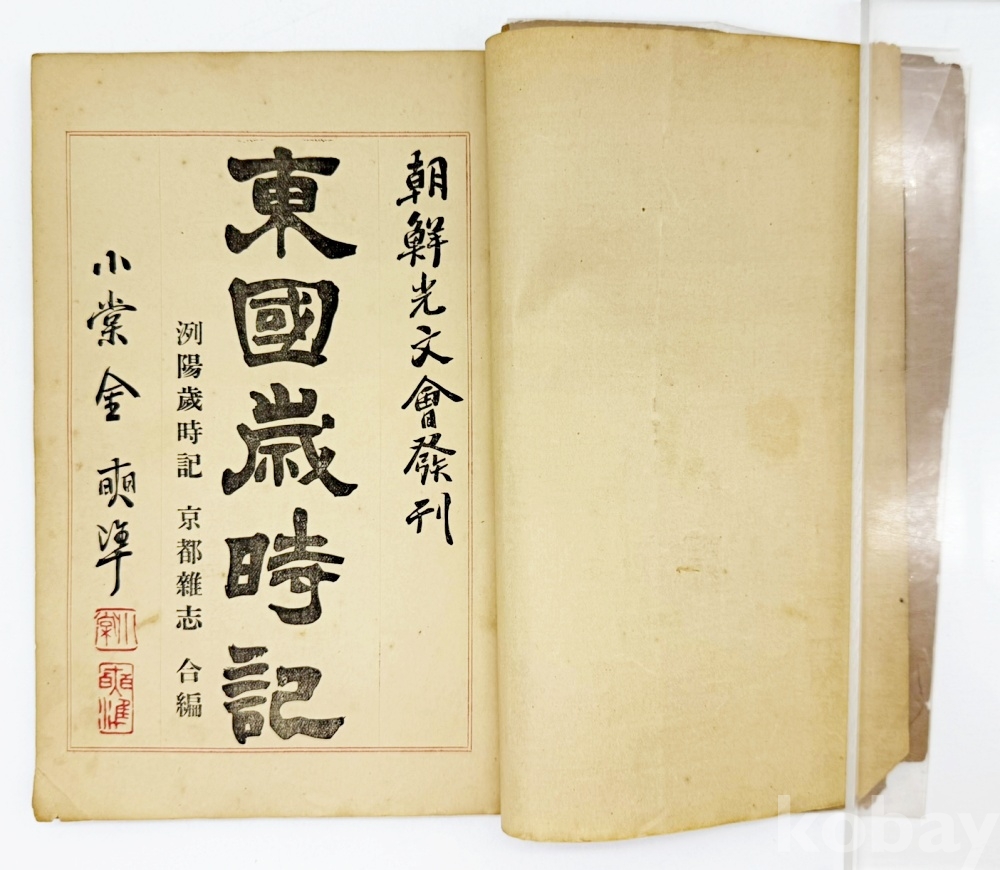 朝鮮光文會發刊
東國嵗時記
洌陽歲時記 京都雜志 合編
小棠 金奭準
小棠
奭準
kobay